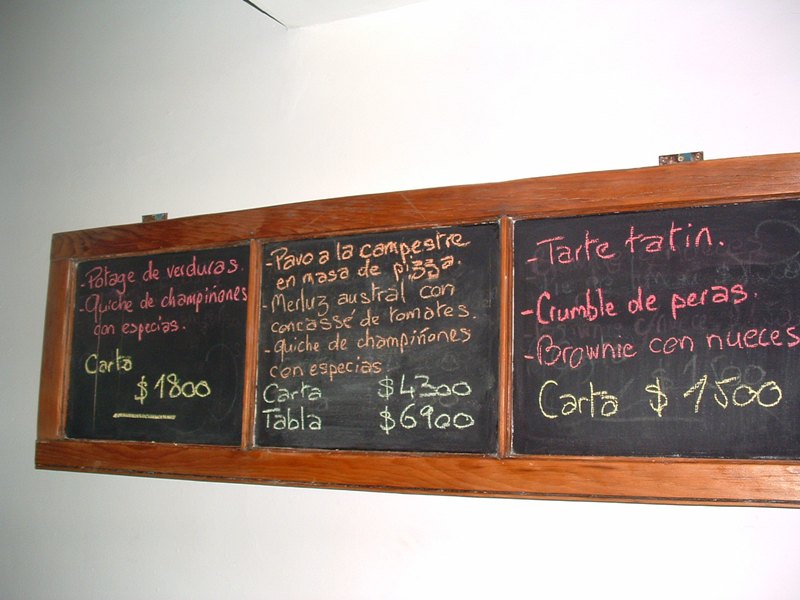 -Potage de verduras.
-Quiche de champiñones
con especias.
Carta
$1800
-Pavo a la campestre
en masa de pizza.
-Merluz austral con
concassé de tomates.
-Quiche de champiñones
con especias
Carta $4300
Tabla $6900
-Tarte tatin.
-Crumble de peras.
-Brownie con nueces
Carta $1500